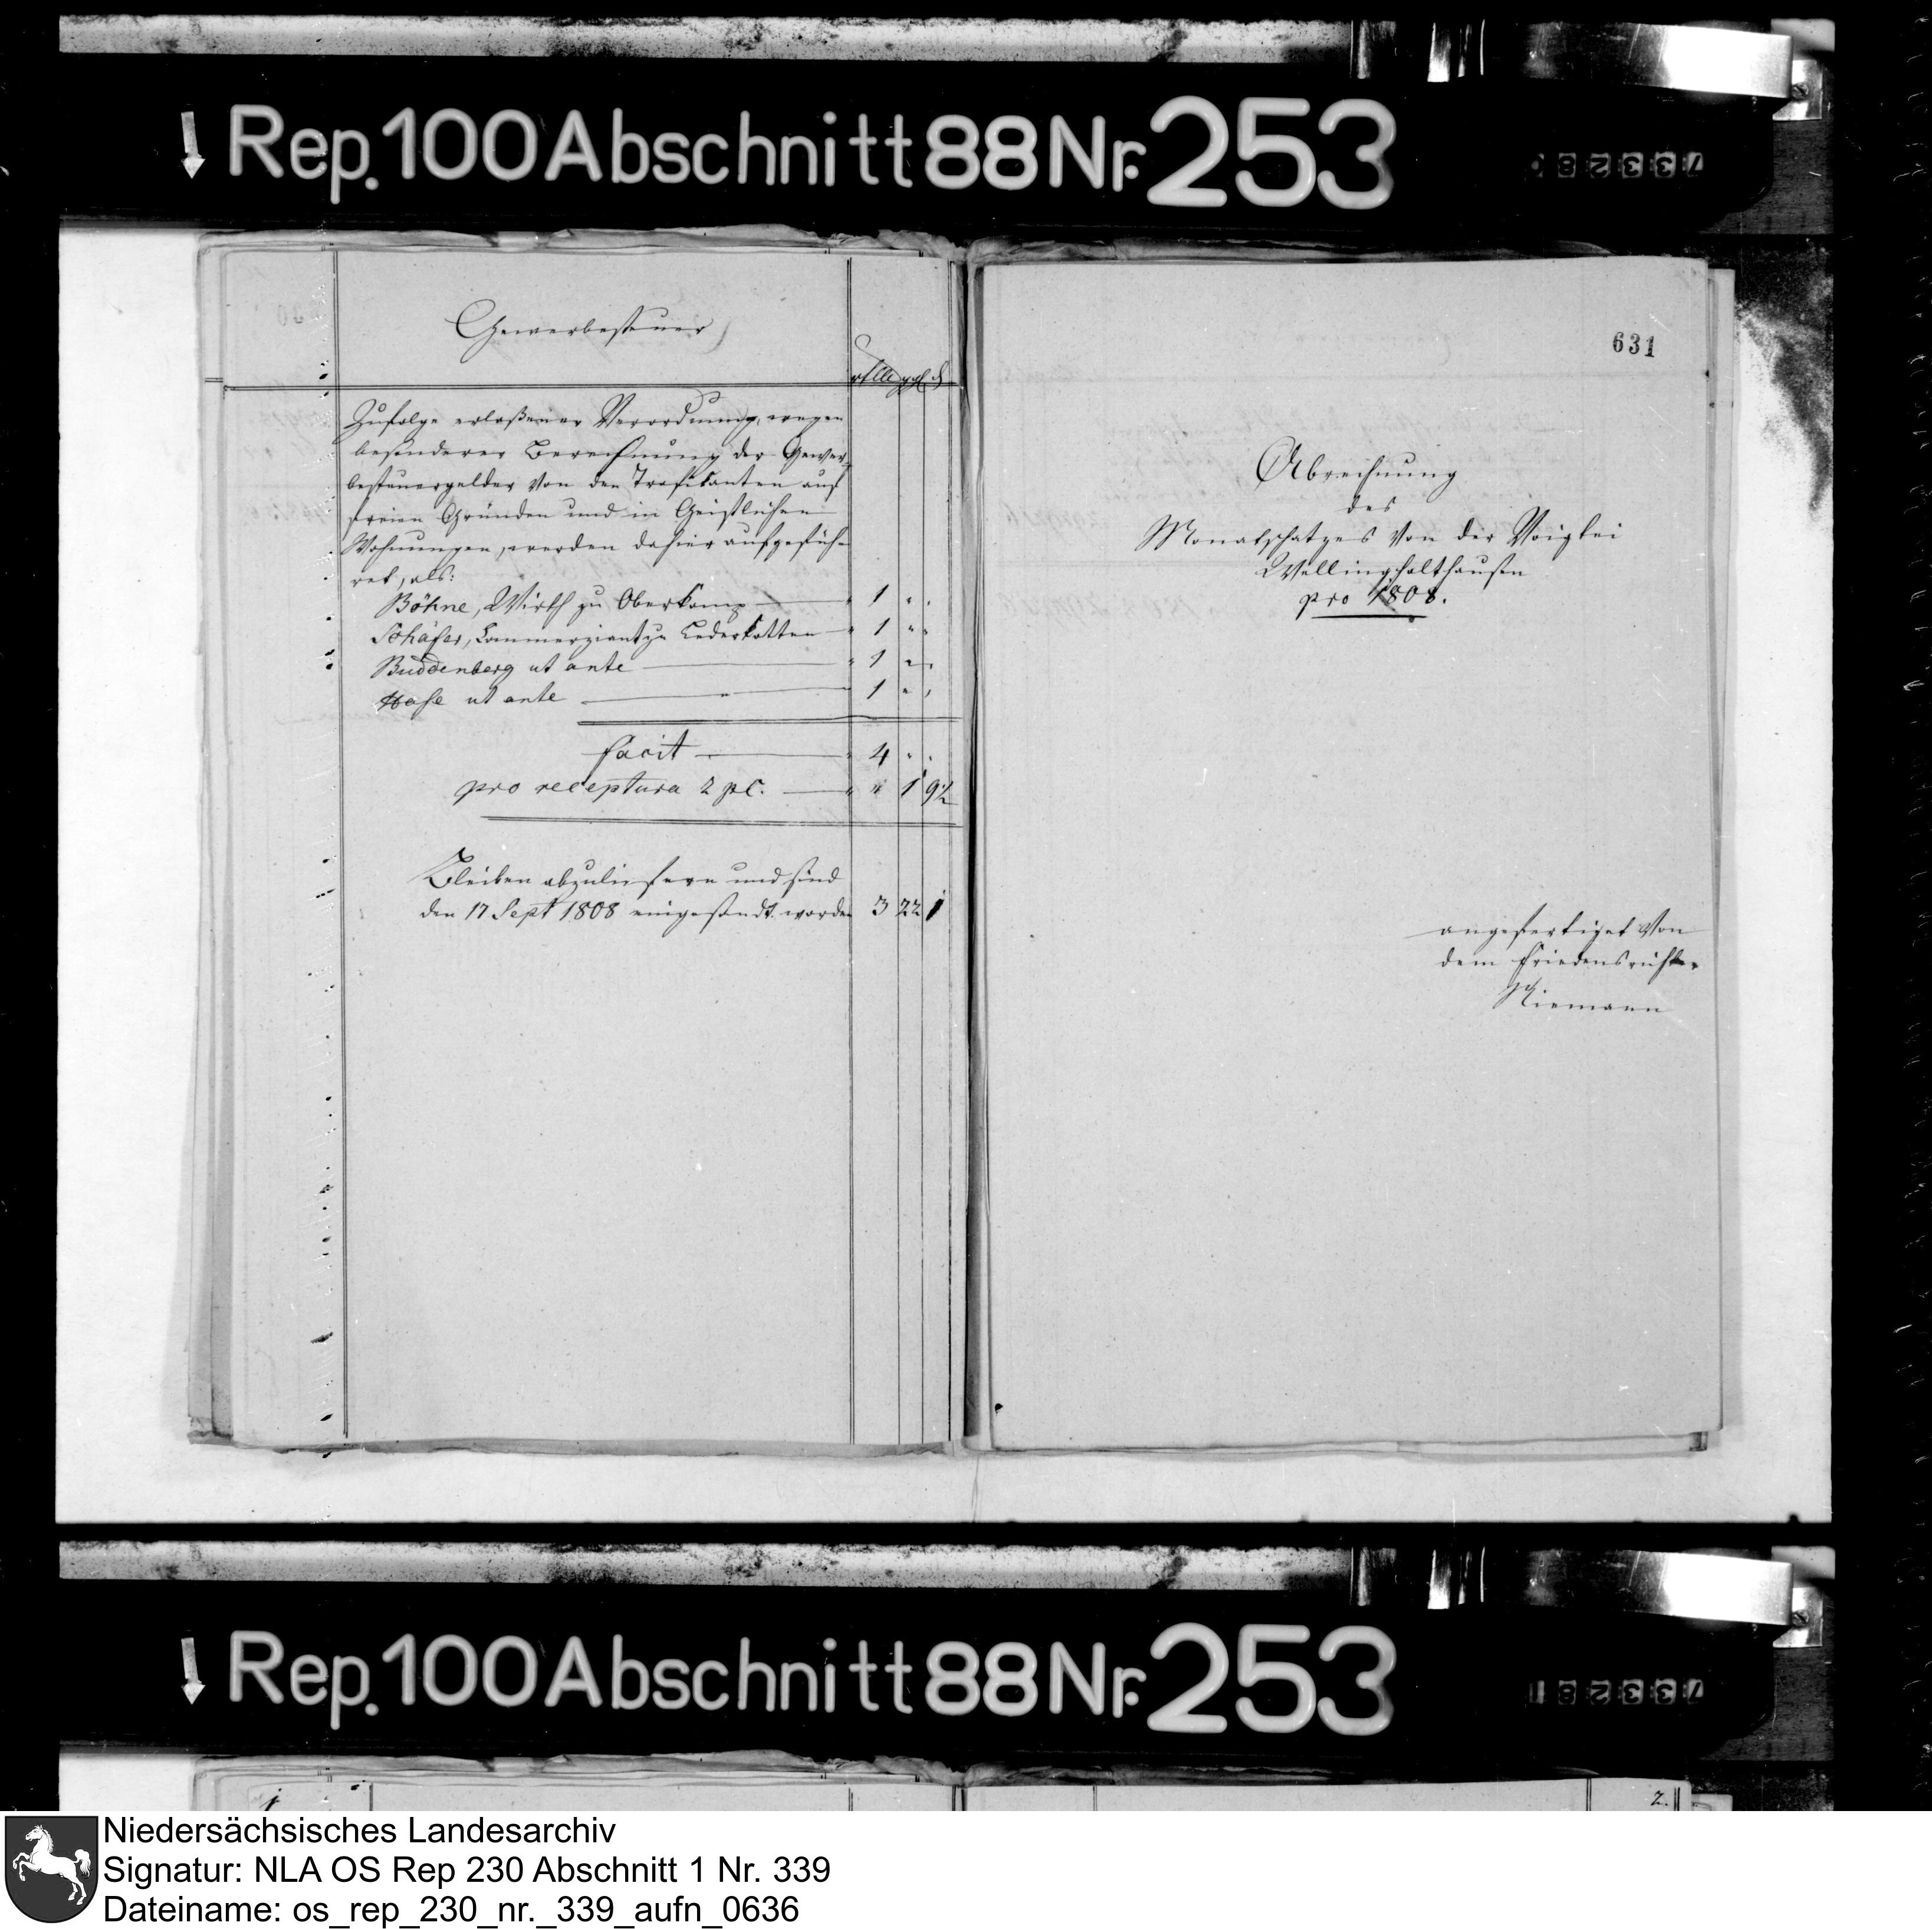 Rep. 100 Abschnitt 88 Nr. 253
733280
Gewerbesteuer
rthlr ggl d
Zufolge erlaßener Verordnung, wegen
besonderer Berechnung der Gewer-
besteuergelder von den Trafikanten auf
freien Gründen und in Geistlichen
Wohnungen, werden dahier aufgefüh-
ret, als:
Böhne, Wirth zu Oberkamp 1 " "
Schäfer, Commerziant zu Lederkotten 1 " "
Buddenberg ut ante 1 " "
Hase ut ante 1 " "
facit 4 " "
pro receptura 2 pC. " 1 9½
Bleiben abzuliefern und sind
den 17 Sept 1808 eingesandt worden 3 22 1
631
Abrechnung
des
Monatschatzes von der Voigtei
Wellingholthausen
pro 1808.
angefertiget von
dem Friedensrichter
Niemann
Rep. 100 Abschnitt 88 Nr. 253
733281
1
2.
Niedersächsisches Landesarchiv
Signatur: NLA OS Rep 230 Abschnitt 1 Nr. 339
Dateiname: os_rep_230_nr._339_aufn_0636